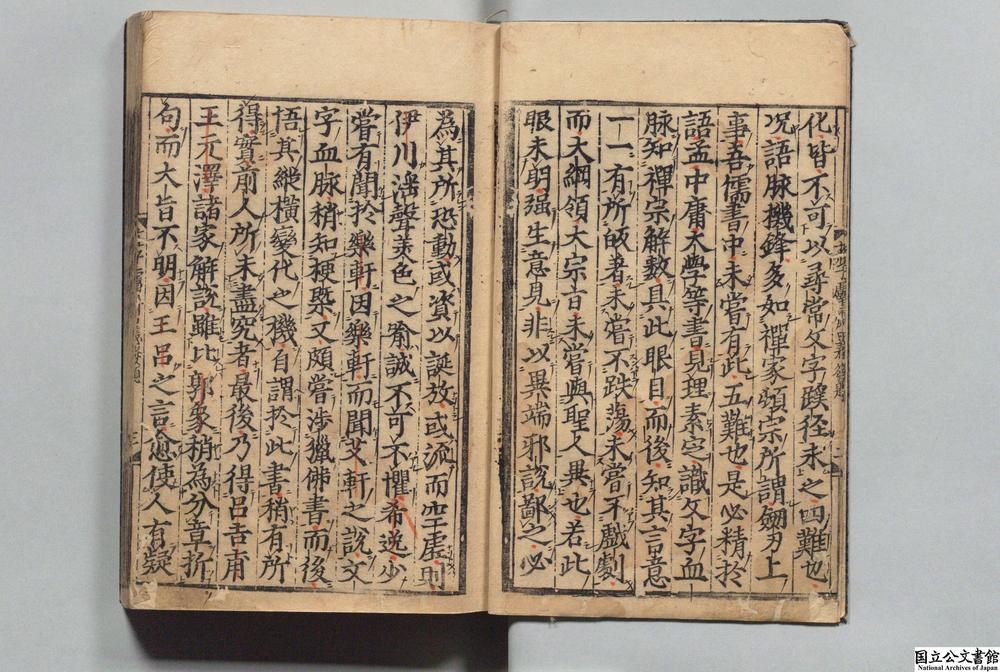 化皆不可以尋常文字蹊径求之四難也
况語脉機鋒多如禪家頓宗所謂劔刃上
事吾儒書中未嘗有此五難也是必精於
語孟中庸大學等書見理素定識文字血
脉知禪宗解數具此眼目而後知其言意
一一有所皈著未嘗不跌蕩未嘗不戲劇
而大綱領大宗旨未嘗與聖人異也若此
眼未明强生意見非以異端邪說鄙之必
為其所恐動或資以誕放或流而空虚則
伊川淫聲美色之喻誠不可不懼希逸少
嘗有聞於樂軒因樂軒而聞艾軒之說文
字血脉稍知梗槩又頗嘗涉獵佛書而後
悟其縱橫變化之機自謂於此書稍有所
得實前人所未盡究者最後乃得呂吉甫
王元澤諸家解說雖比郭象稍為分章析
句而大旨不明因王呂之言愈使人有疑
国立公文書館
National Archives of Japan